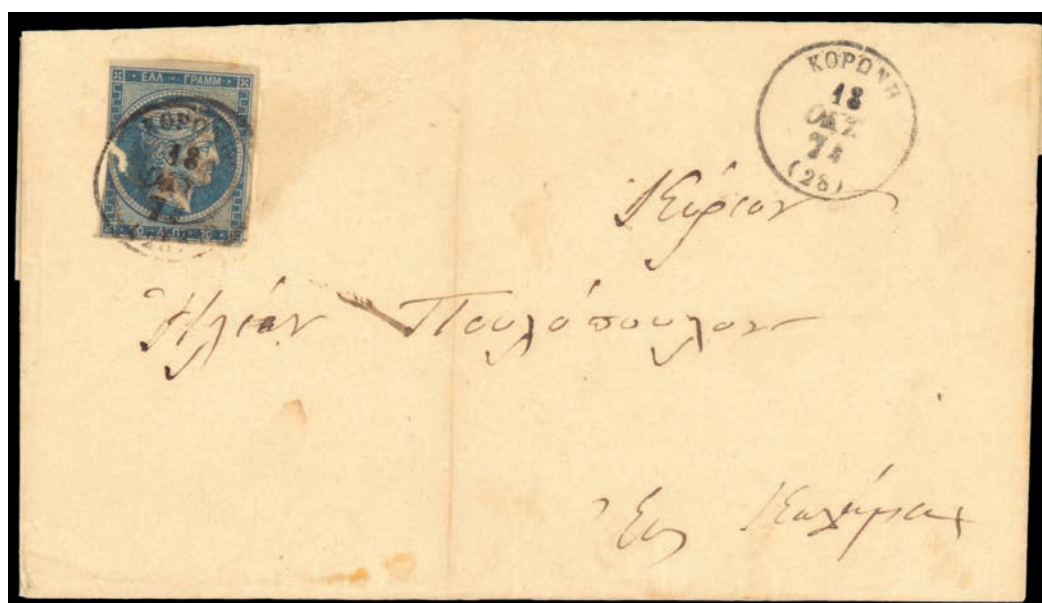 ΕΛΛ ΓΡΑΜΜ
ΚΟΡΩ
18
20 ΛΕΠ. 20
ΚΟΡΩΝΗ
18
ΟΚΤ
74
(28)
Κύριον
Ηλίαν Πουλόπουλον
Εις Καλάμας